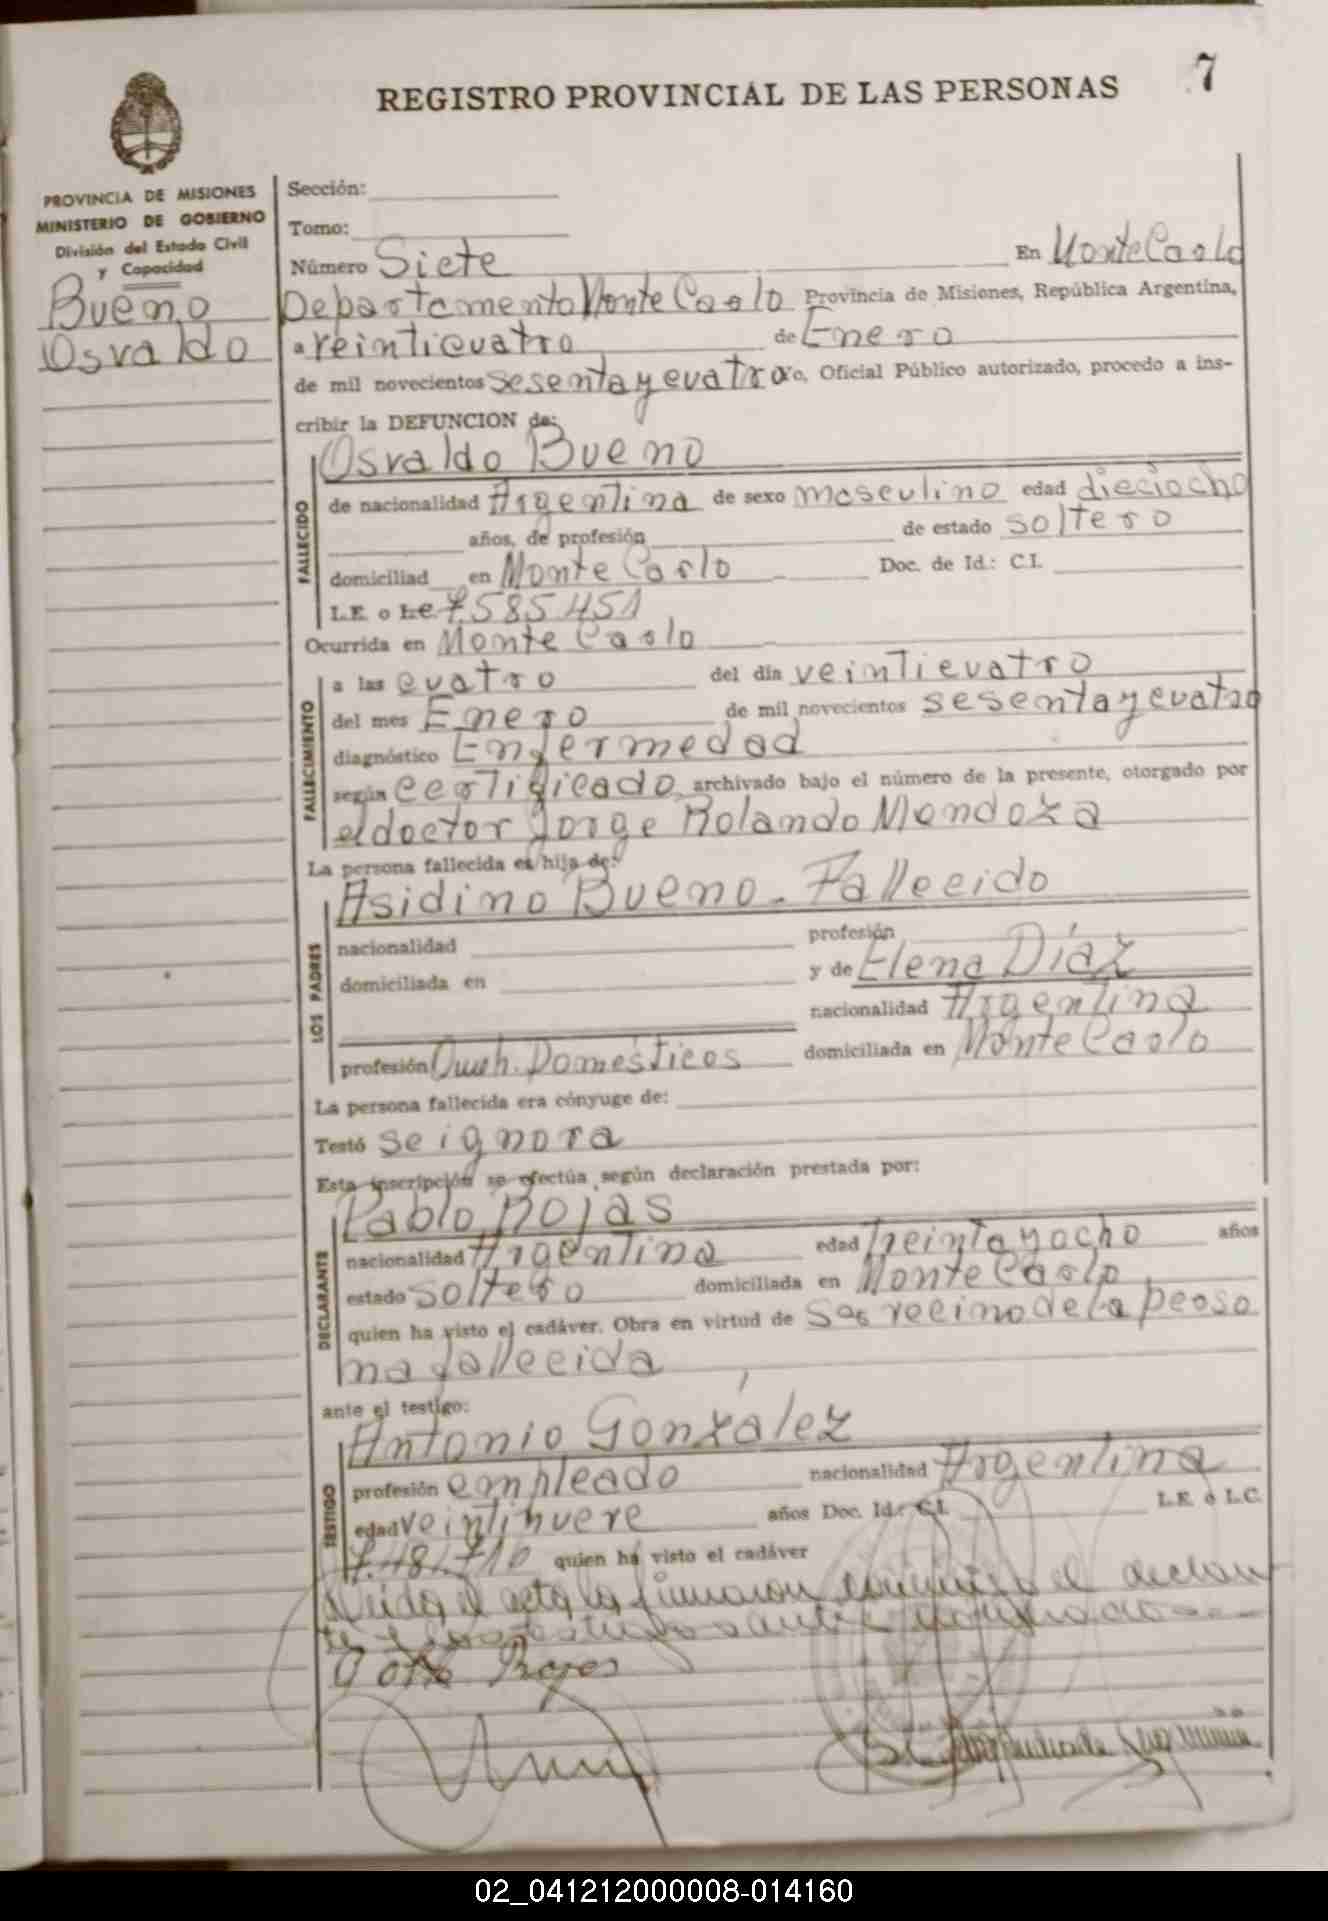 7
REGISTRO PROVINCIAL DE LAS PERSONAS
PROVINCIA DE MISIONES
MINISTERIO DE GOBIERNO
División del Estado Civil
y Capacidad
Bueno
Osvaldo
Sección:
Tomo:
Número Siete En Monte Carlo
Departamento Monte Carlo Provincia de Misiones, República Argentina,
a veinticuatro de Enero
de mil novecientos sesenta y cuatro yo, Oficial Público autorizado, procedo a ins-
cribir la DEFUNCION de:
Osvaldo Bueno
FALLECIDO
de nacionalidad Argentina de sexo masculino edad dieciocho
años, de profesión de estado soltero
domiciliad en Monte Carlo Doc. de Id.: C.I.
L.E. o L.C. 7.585.451
Ocurrida en Monte Carlo
FALLECIMIENTO
a las cuatro del día veinticuatro
del mes Enero de mil novecientos sesenta y cuatro
diagnóstico Enfermedad
según certificado, archivado bajo el número de la presente, otorgado por
el doctor Jorge Rolando Mendoza
La persona fallecida es hija de:
Asidino Bueno - Fallecido
LOS PADRES
nacionalidad profesión
domiciliada en y de Elena Díaz
nacionalidad Argentina
profesión Queh. Domésticos domiciliada en Monte Carlo
La persona fallecida era cónyuge de:
Testó se ignora
Esta inscripción se efectúa según declaración prestada por:
Pablo Rojas
DECLARANTE
nacionalidad Argentina edad treinta y ocho años
estado soltero domiciliada en Monte Carlo
quien ha visto el cadáver. Obra en virtud de ser vecino de la perso
na fallecida
ante el testigo:
Antonio González
TESTIGO
profesión empleado nacionalidad Argentina
edad veintinueve años Doc. Id.: C.I. L.E. o L.C.
7.481.710 quien ha visto el cadáver
Leída el acta la firmaron conmigo el declaran
te y
Rojas
02_041212000008-014160